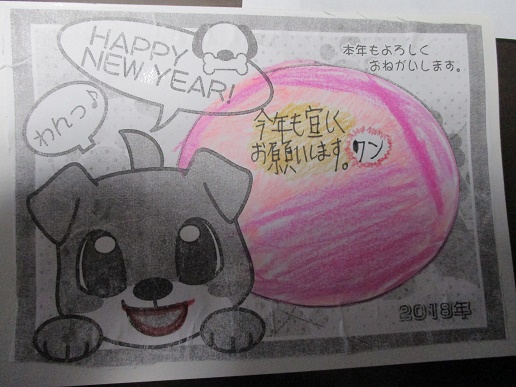 HAPPY
NEW YEAR!
本年もよろしく
おねがいします。
わんっ♪
今年も宜しく
お願いします。ワン
2018年